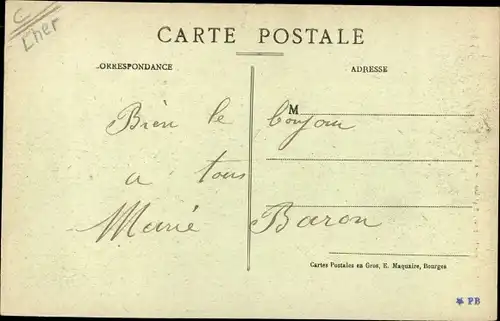 C
Cher
CARTE POSTALE
CORRESPONDANCE
ADRESSE
M
Bien le bonjour
a tous
Marie Baron
Cartes Postales en Gros, E. Maquaire, Bourges
PB